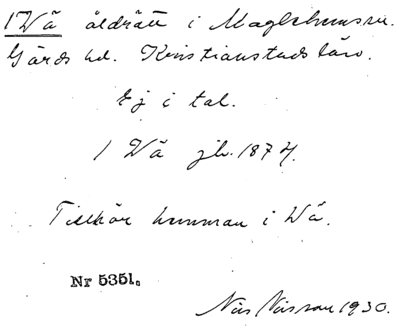 1 Vä åldrätt i Maglehemssn.
Gärds hd. Kristianstads län.
Ej i tal.
1 Vä jb. 1874.
Tillhör hemman i Vä.
Nr 5351.
Nils Nilsson 1930.